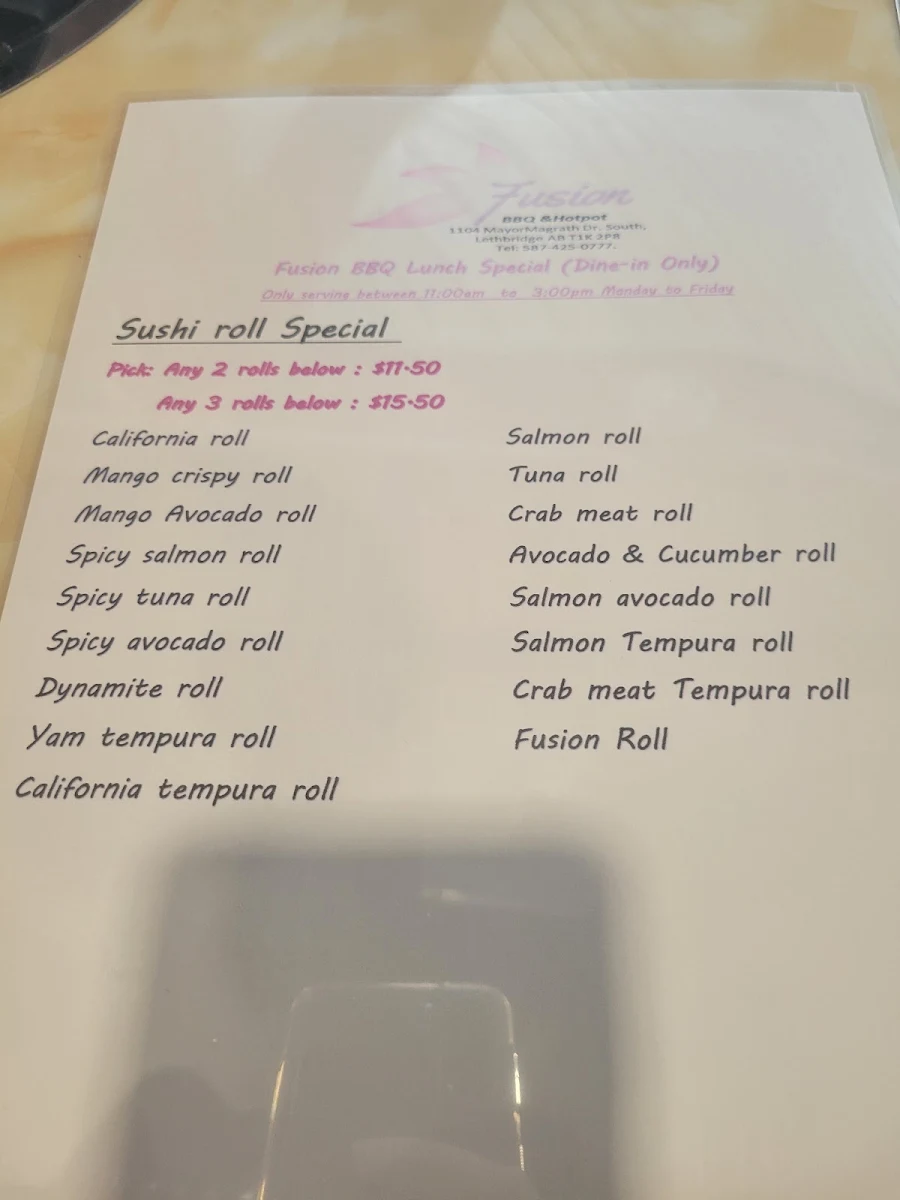 Fusion
BBQ & Hotpot
1104 MayorMagrath Dr. South,
Lethbridge AB T1K 2P8
Tel: 587-425-0777.
Fusion BBQ Lunch Special (Dine-in Only)
Only serving between 11:00am to 3:00pm Monday to Friday
Sushi roll Special
Pick: Any 2 rolls below : $11.50
Any 3 rolls below : $15.50
California roll
Mango crispy roll
Mango Avocado roll
Spicy salmon roll
Spicy tuna roll
Spicy avocado roll
Dynamite roll
Yam tempura roll
California tempura roll
Salmon roll
Tuna roll
Crab meat roll
Avocado & Cucumber roll
Salmon avocado roll
Salmon Tempura roll
Crab meat Tempura roll
Fusion Roll